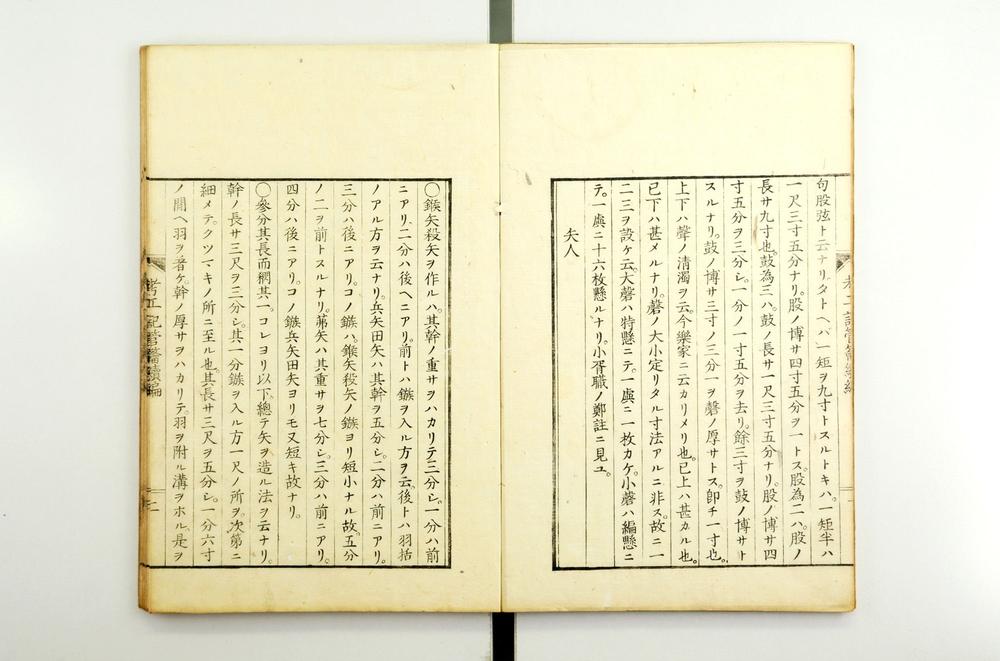 句股弦ト云ナリ。タトヘバ一矩ヲ九寸トスルトキハ。一矩半ハ
一尺三寸五分ナリ。股ノ博サ四寸五分ヲ一トス。股為二ハ。股ノ
長サ九寸也。鼓為三ハ。鼓ノ長サ一尺三寸五分ナリ。股ノ博サ四
寸五分ヲ三分シ。一分ノ一寸五分ヲ去リ。餘三寸ヲ鼓ノ博サト
スルナリ。鼓ノ博サ三寸ノ三分一ヲ磬ノ厚サトス。卽チ一寸也。
上下ハ聲ノ清濁ヲ云。今樂家ニ云カリメリ也。已上ハ甚カル也。
已下ハ甚メルナリ。磬ノ大小定リタル寸法アルニ非ス。故ニ一
二三ヲ設ケ云。大磬ハ特懸ニテ。一虡ニ一枚カケ。小磬ハ編懸ニ
テ。一虡ニ十六枚懸ルナリ。小胥職ノ鄭註ニ見ユ。
矢人
〇鍭矢殺矢ヲ作ルハ。其幹ノ重サヲハカリテ三分シ。一分ハ前
ニアリ。二分ハ後ヘニアリ。前トハ鏃ヲ入ル方ヲ云。後トハ羽括
ノアル方ヲ云ナリ。兵矢田矢ハ其幹ヲ五分シ。二分ハ前ニアリ。
三分ハ後ニアリ。コノ鏃ハ。鍭矢殺矢ノ鏃ヨリ短小ナル故。五分
ノ二ヲ前トスルナリ。茀矢ハ其重サヲ七分シ。三分ハ前ニアリ。
四分ハ後ニアリ。コノ鏃兵矢田矢ヨリモ又短キ故ナリ。
〇參分其長而網其一。コレヨリ以下。總テ矢ヲ造ル法ヲ云ナリ。
幹ノ長サ三尺ヲ三分シ。其一分鏃ヲ入ル方一尺ノ所ヲ。次第ニ
細メテ。クツマキノ所ニ至ル也。其長サ三尺ヲ五分シ。一分六寸
ノ間ヘ羽ヲ著ケ。幹ノ厚サヲハカリテ。羽ヲ附ル溝ヲホル。是ヲ
考工記管籥續編
二